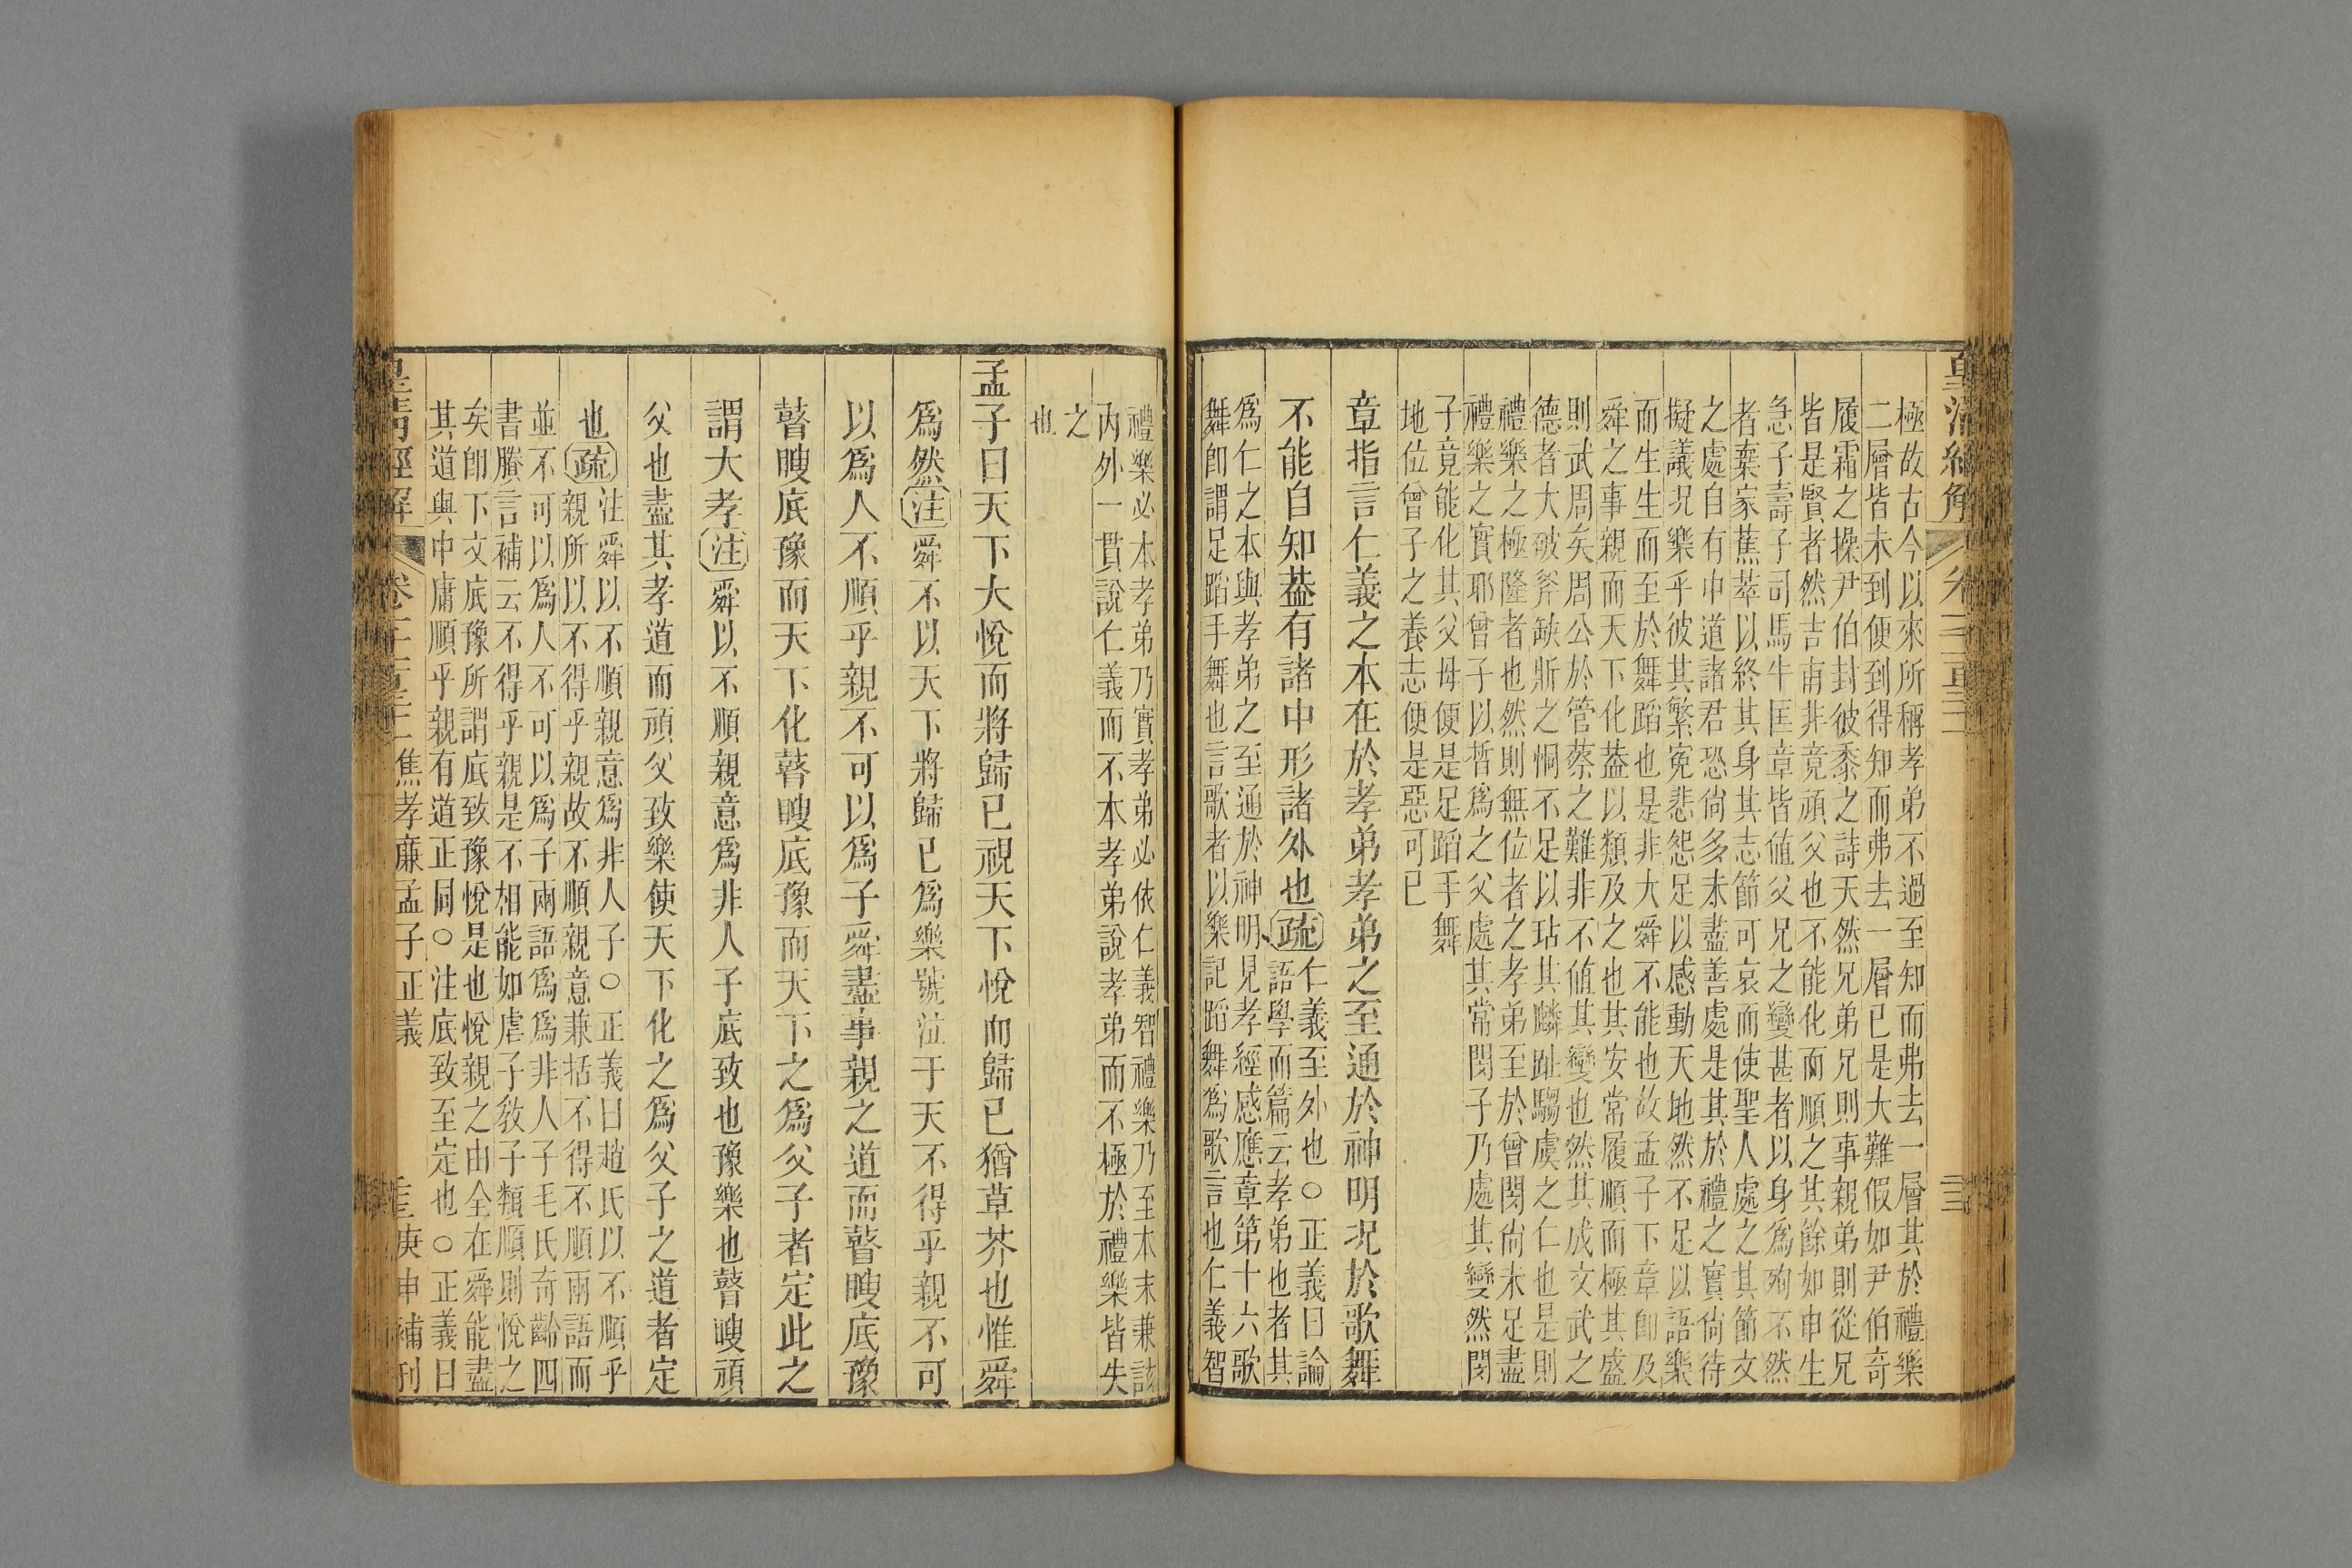 極故古今以來所稱孝弟不過至知而弗去一層其於禮樂
二層皆未到便到得知而弗去一層已是大難假如尹伯奇
履霜之操尹伯封彼黍之詩天然兄弟兄則事親弟則從兄
皆是賢者然吉甫井竟頑父也不能化而順之其餘如申生
急子壽子司馬牛匡章皆値父兄之變甚者以身爲殉不然
者棄家蕉萃以終其身其志節可哀而使聖人處之其節文
之處自有中道諸君恐尙多未盡善處是其於禮之實尙待
擬議况樂乎彼其繁寃悲怨足以感動天地然不足以語樂
而生生而至於舞蹈也是非大舜不能也故孟子下章卽及
舜之事親而天下化葢以類及之也其安常履順而極其盛
則武周矣周公於管蔡之難非不値其變也然其成文武之
德者大破斧缺斨之恫不足以玷其麟趾騶虞之仁也是則
禮樂之極隆者也然則無位者之孝弟至於曾閔尙未足盡
禮樂之實耶曾子以晳爲之父處其常閔子乃處其變然閔
子竟能化其父母便是足蹈手舞
地位曾子之養志便是惡可已
章指言仁義之本在於孝弟孝弟之至通於神明况於歌舞
不能自知葢有諸中形諸外也疏仁義至外也○正義曰論
語學而篇云孝弟也者其
爲仁之本與孝弟之至通於神明見孝經感應章第十六歌
舞卽謂足蹈手舞也言歌者以樂記蹈舞爲歌言也仁義智
禮樂必本孝弟乃實孝弟必依仁義智禮樂乃至本末兼該
內外一貫說仁義而不本孝弟說孝弟而不極於禮樂皆失
之
也
孟子曰天下大悅而將歸已視天下悅而歸已猶草芥也惟舜
爲然注舜不以天下將歸已爲樂號泣于天不得乎親不可
以爲人不順乎親不可以爲子舜盡事親之道而瞽瞍底豫
瞽瞍底豫而天下化瞽瞍底豫而天下之爲父子者定此之
謂大孝注舜以不順親意爲非人子底致也豫樂也瞽瞍頑
父也盡其孝道而頑父致樂使天下化之爲父子之道者定
也疏注舜以不順親意爲非人子○正義曰趙氏以不順乎
親所以不得乎親故不順親意兼括不得不順兩語而
並不可以爲人不可以爲子兩語爲爲非人子毛氏奇齡四
書賸言補云不得乎親是不相能如虐子敎子類順則悅之
矣卽下文底豫所謂底致豫悅是也悅親之由全在舜能盡
其道與中庸順乎親有道正同○注底致至定也○正義曰
皇淸經解 卷一千一百三十二 焦孝廉孟子正義 庚申補刊